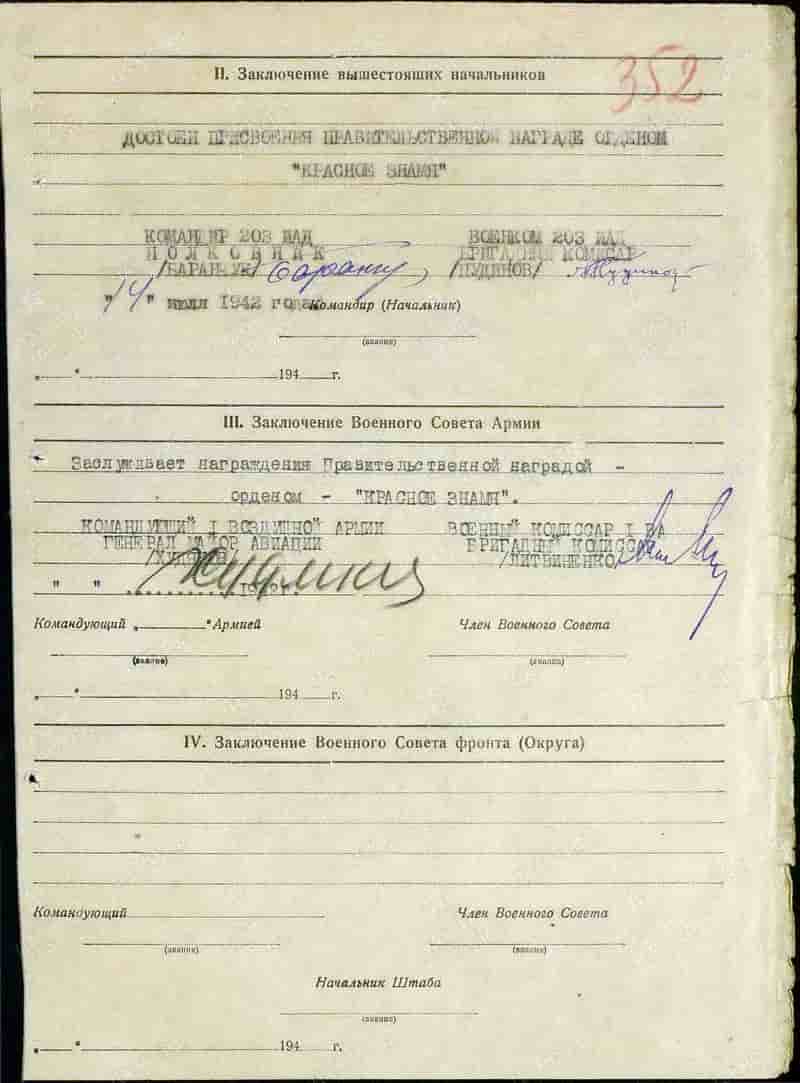 352
II. Заключение вышестоящих начальников
ДОСТОЕН ПРИСВОЕНИЯ ПРАВИТЕЛЬСТВЕННОЙ НАГРАДЕ ОРДЕНОМ
"КРАСНОЕ ЗНАМЯ"
КОМАНДИР 203 ИАД ВОЕНКОМ 203 ИАД
ПОЛКОВНИК БРИГАДНЫЙ КОМИССАР
/БАРАНЧУК/ /ПУДИНОВ/
"14" июля 1942 года Командир (Начальник)
(звание)
„ “ 194 г.
III. Заключение Военного Совета Армии
Заслуживает награждения Правительственной наградой -
орденом - "КРАСНОЕ ЗНАМЯ".
КОМАНДУЮЩИЙ I ВОЗДУШНОЙ АРМИИ ВОЕННЫЙ КОМИССАР I ВА
ГЕНЕРАЛ МАЙОР АВИАЦИИ БРИГАДНЫЙ КОМИССАР
/ХУДЯКОВ/ /ЛИТВИНЕНКО/
" "
Командующий „ “ Армией Член Военного Совета
(звание) (звание)
„ “ 194 г.
IV. Заключение Военного Совета фронта (Округа)
Командующий Член Военного Совета
(звание) (звание)
Начальник Штаба
(звание)
„ “ 194 г.